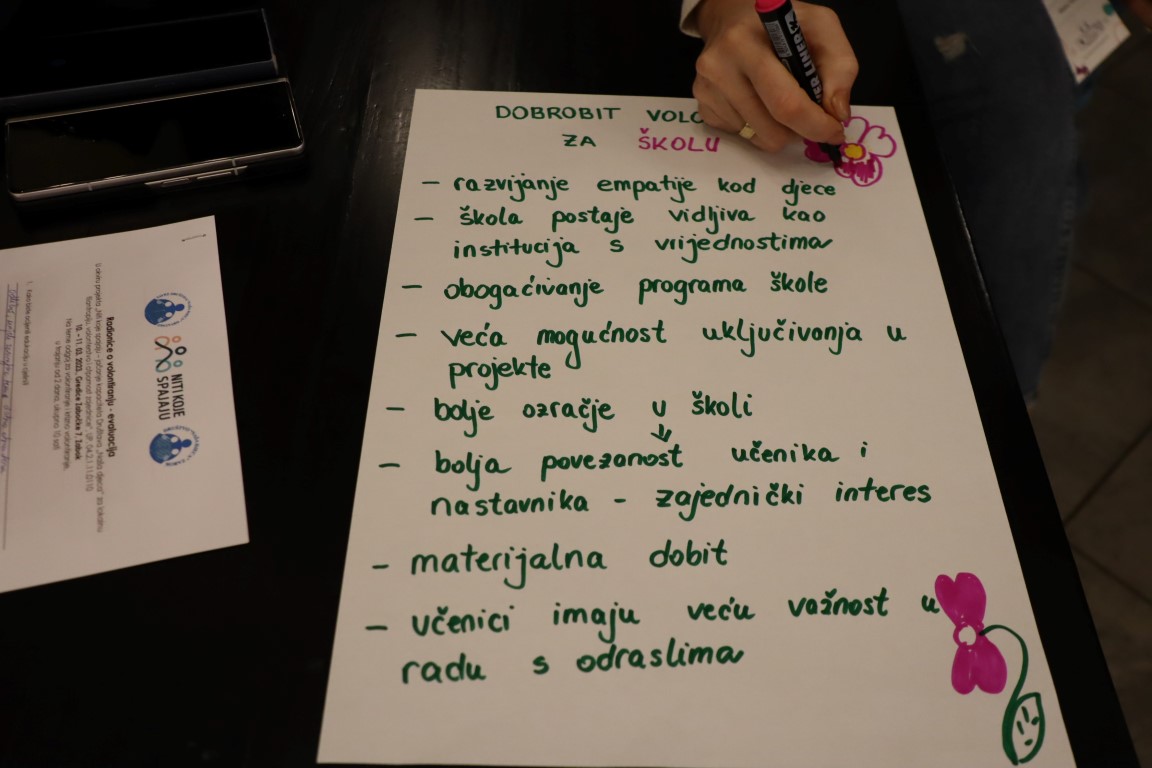 DOBROBIT VOLO
ZA ŠKOLU
– razvijanje empatije kod djece
– škola postaje vidljiva kao
institucija s vrijednostima
– obogaćivanje programa škole
– veća mogućnost uključivanja u
projekte
– bolje ozračje u školi
– bolja povezanost učenika i
nastavnika - zajednički interes
– materijalna dobit
– učenici imaju veću važnost u
radu s odraslima
NITI KOJE
SPAJAJU
Radionice o volontiranju - evaluacija
10. - 11. 03. 2023. Gredice Zabočke 7, Zabok